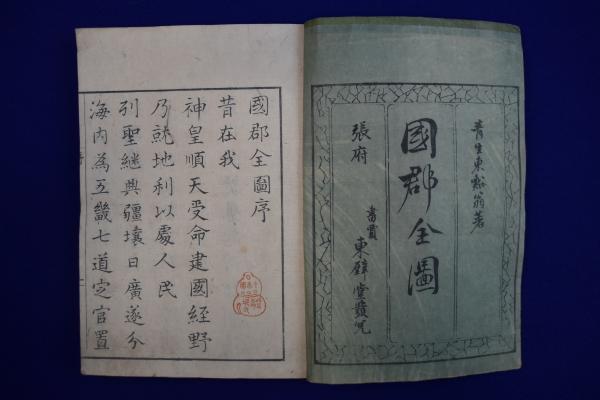 青生東谿翁著
國郡全圖
張府
書賈
東壁堂發兌
國郡全圖序
昔在我
神皇順天受命建國經野
乃就地利以處人民
列聖繼興疆壤日廣遂分
海內為五畿七道定官置